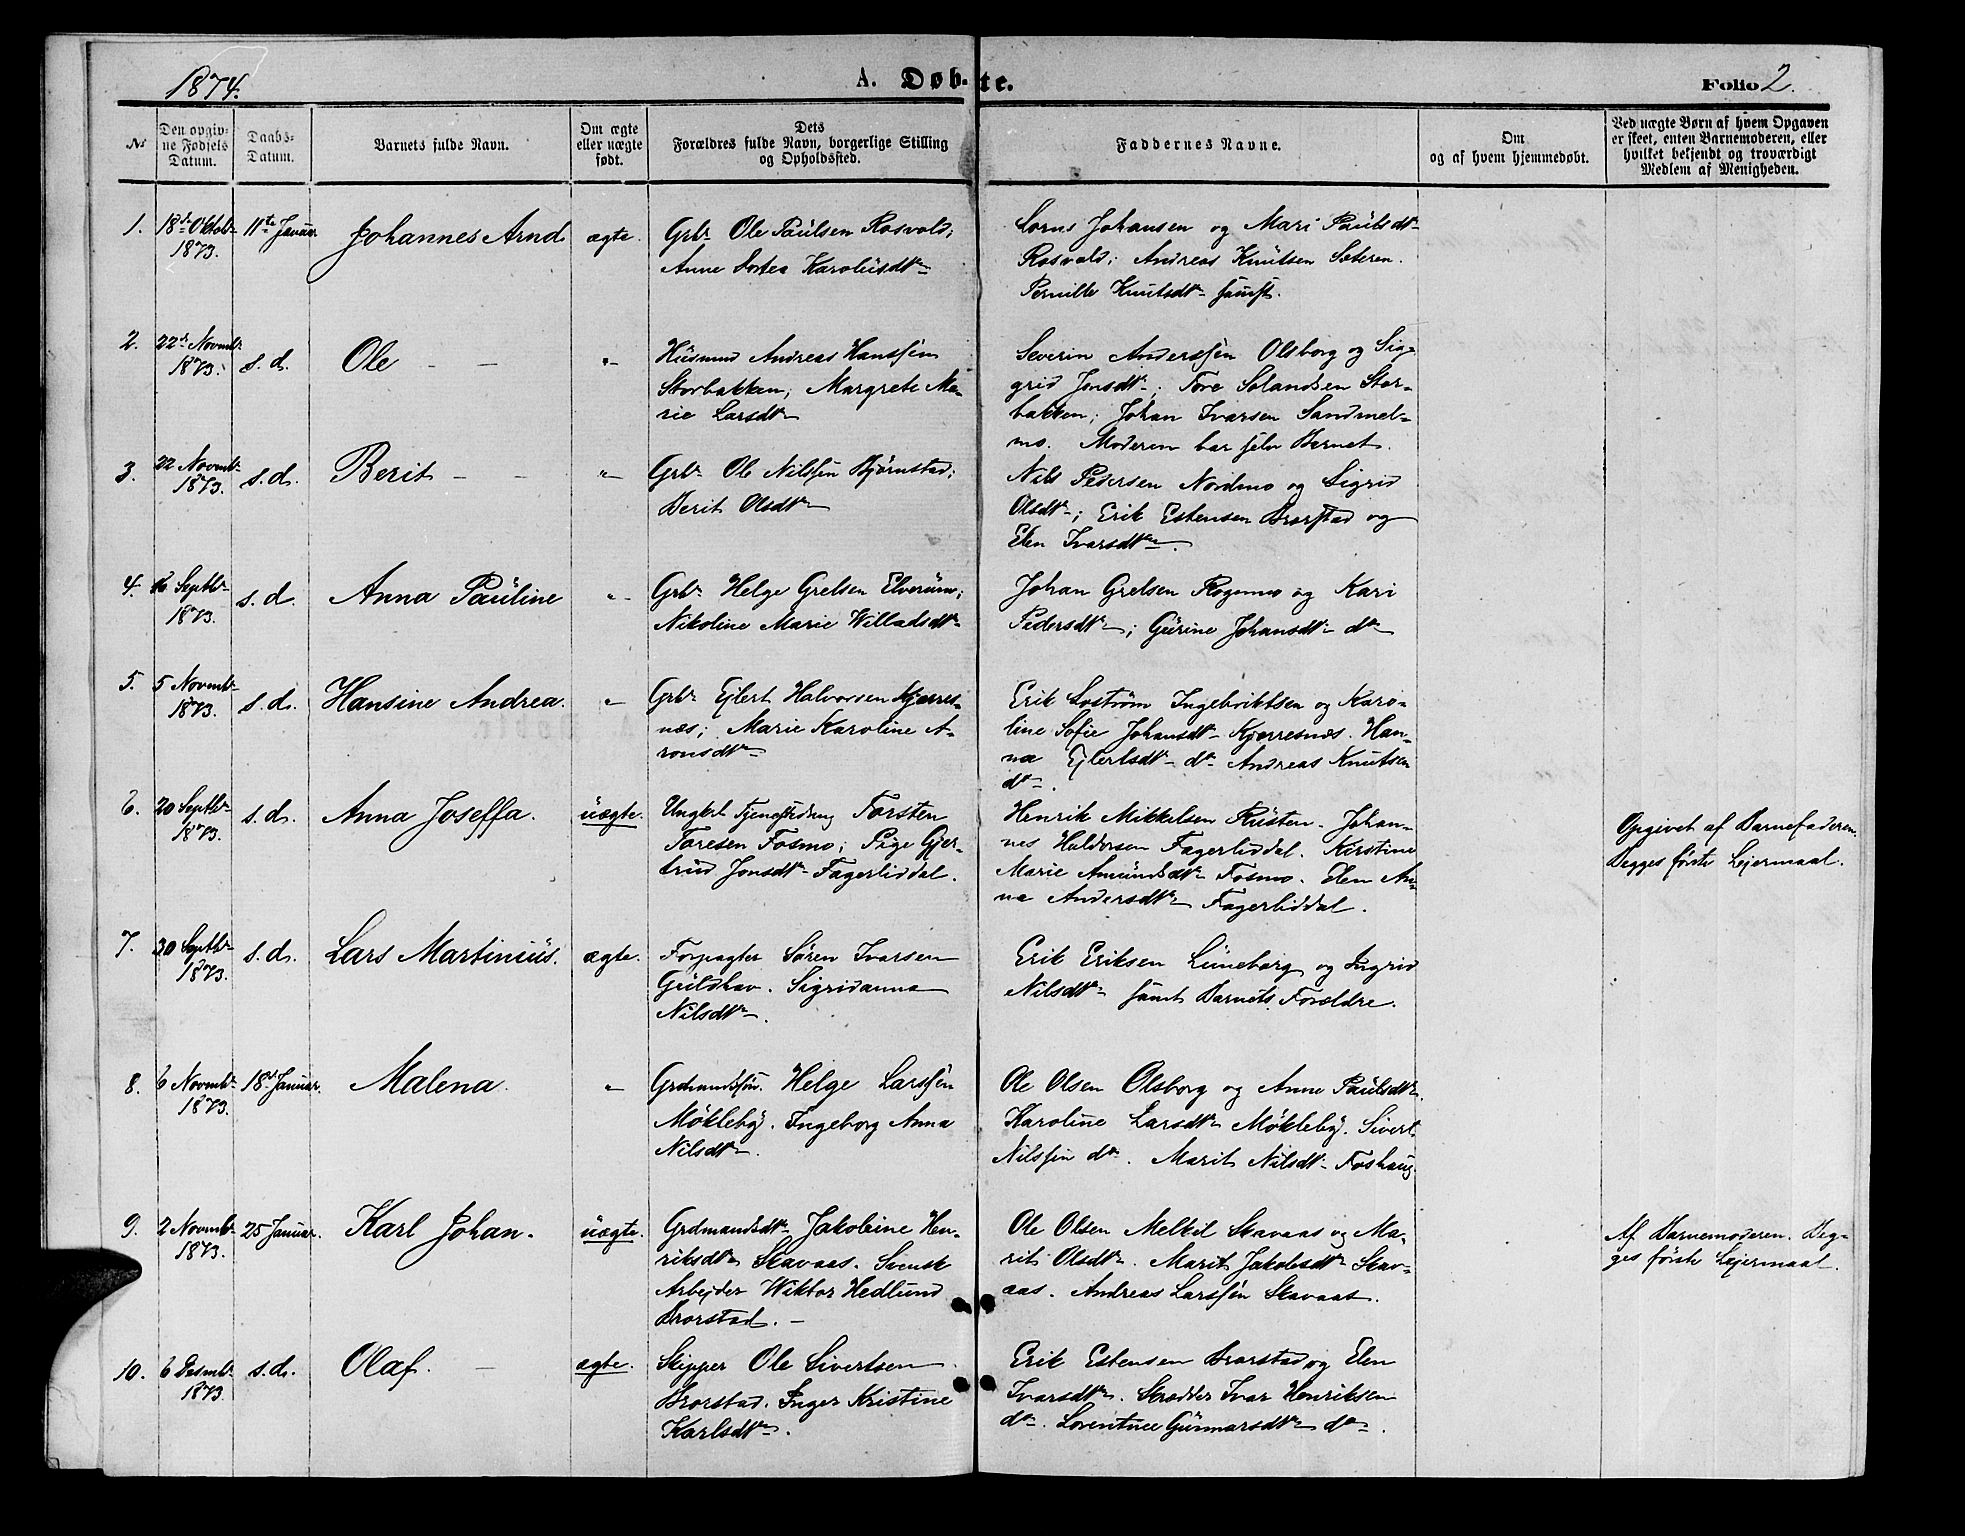 1874.
A. Døbte.
Folio 2.
No
Den opgiv-
ne Fødsels
Datum.
Daabs-
Datum.
Barnets fulde Navn.
Om ægte
eller uægte
født.
Dets
Forældres fulde Navn, borgerlige Stilling
og Opholdssted.
Faddernes Navne.
Om
og af hvem hjemmedøbt.
Ved uægte Børn af hvem Opgaven
er skeet, enten Barnemoderen, eller
hvilket bekjendt og troværdigt
Medlem af Menigheden.
1.
18de Oktobr
1873.
11te Januar
Johannes Arnd
ægte.
Grbr Ole Paulsen Rosvold;
Anne Dortea Karolusdtr
Johansen og Mari Paulsdtr
Rosvold; Andreas Knutsen Sæteren.
Pernille Knutsdtr
2.
22de Novmbr
1873.
s. d.
Ole
"
Husmnd Andreas Hanssen
Storbakken; Margrete Ma-
rie Larsdtr
Severin Anderssen Olsborg og Sig-
grid Jonsdtr; Tore Stor-
bakken; Johan Ivarsen Sandmel-
mo. Moderen bar selv Barnet.
3.
22 Novmbr
1873.
s. d.
Berit
"
Grbr Ole Nilssen Bjørnstad;
Berit Olsdtr
Nils Pedersen Nordmo og Sigrid
Olsdtr; Erik Estensen Brorstad og
Elen Ivarsdtr.
4.
16 Septbr
1873.
s. d.
Anna Pauline
"
Grbr Helge Grelsen Elverum;
Nikoline Marie Willadsdtr
Johan Grelsen Rognmo og Kari
Pedersdtr; Gurine Johansdtr do
5.
5 Novmbr
1873.
s. d.
Hansine Andrea.
"
Grbr Ejlert Halvorsen Kjerres-
næs; Marie Karoline A-
ronsdtr
Erik Ingebriktsen og Karo-
line Sofie Johansdtr Kjerresnæs. Han-
na Ejlertsdtr do Andreas Knutsen
do.
6.
20 Septbr
1873.
s. d.
Anna Joseffa.
uægte.
Ungkl Tjenestedreng Torsten
Toresen Fosmo; Pige Gjer-
trud Jonsdtr Fagerliddal.
Henrik Mikkelsen Rusten. Johan-
nes Haldorsen Fagerliddal. Kirstine
Marie Amundsdtr Fosmo. Elen An-
na Andersdtr Fagerliddal.
Opgivet af Barnefaderen.
Begges første Lejermaal.
7.
30 Septbr
1873.
s. d.
Lars Martinius.
ægte.
Forpagter Søren Ivarsen
Guldhav. Sigridanna
Nilsdtr.
Erik Eriksen Luneborg og Ingrid
Nilsdtr samt Barnets Forældre.
8.
6 Novmbr
1873.
18de Januar.
Malena.
"
Grdmandssøn. Helge Larssen
Møkleby. Ingeborg Anna
Nilsdtr.
Ole Olsen Olsborg og Anne Paulsdtr.
Karoline Larsdtr Møkleby. Sivert
Nilssen do. Marit Nilsdtr Foshaug
9.
2 Novmbr
1873.
25 Januar.
Karl Johan.
uægte.
Grdmandsdtr Jakobine Hen-
riksdtr Skavaas. Svensk
Arbejder Wiktor Hedlund
Brorstad.
Ole Olsen Melkil Skavaas og Ma-
rit Olsdtr. Marit Jakobsdtr Skav-
aas. Andreas Larssen Skavaas.
Af Barnemoderen. Beg-
ges første Lejermaal.
10.
6 Desmbr
1873.
s. d.
Olaf.
ægte.
Skipper Ole Sivertsen
Brorstad. Inger Kristine
Karlsdtr.
Erik Estensen Brorstad og Elen
Ivarsdtr. Skrædder Ivar Henriksen
do. Gunnarsdtr do.